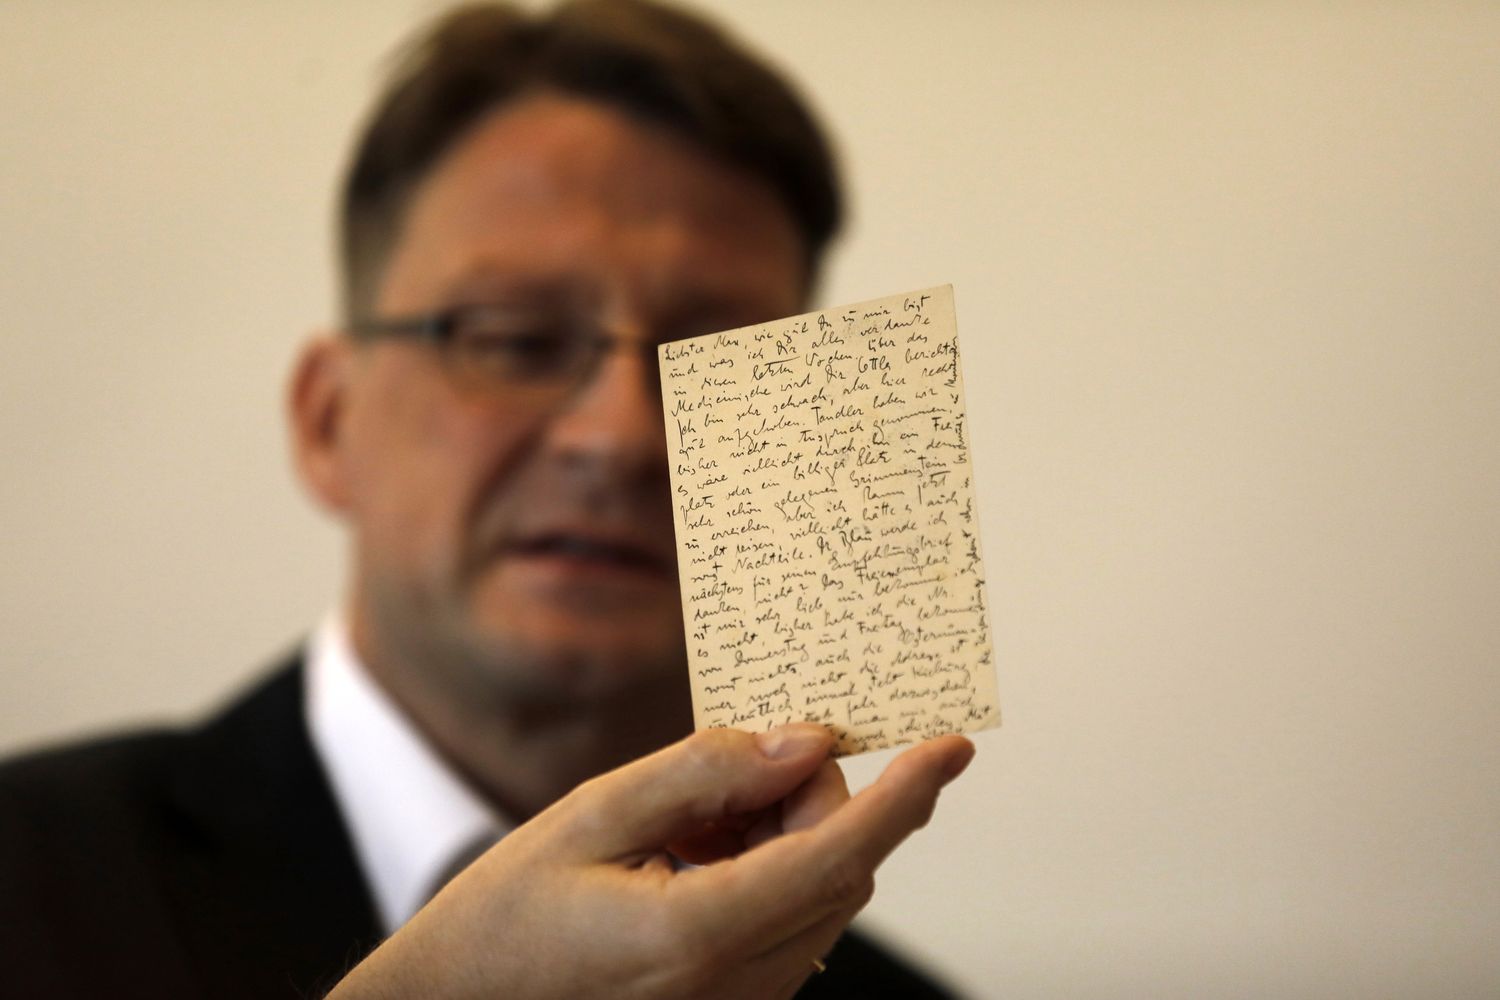 Liebster Max, wie gut Du zu mir bist
und was ich Dir alles verdanke
in diesen letzten Wochen. Über das
Medicinische wird Dir Ottla berichten
Ich bin sehr schwach, aber hier recht
gut aufgehoben. Tandler haben wir
bisher nicht in Anspruch genommen,
es wäre vielleicht durch ihn ein Frei-
platz oder ein billiger Platz in dem
sehr schön gelegenen Grimmenstein
zu erreichen, aber ich kann jetzt
nicht reisen, vielleicht hätte es auch
sonst Nachteile. Dr Blau werde ich
nächstens für seinen Empfehlungsbrief
danken, nicht? Das Freiexemplar
ist mir sehr lieb nur bekomme ich
es nicht, bisher habe ich die Nr.
von Donnerstag und Freitag bekommen
sonst nichts, auch die Osternum-
mer noch nicht die Adresse ist
undeutlich, einmal steht Kierling
dazwischen,
man mir auch
noch schicken